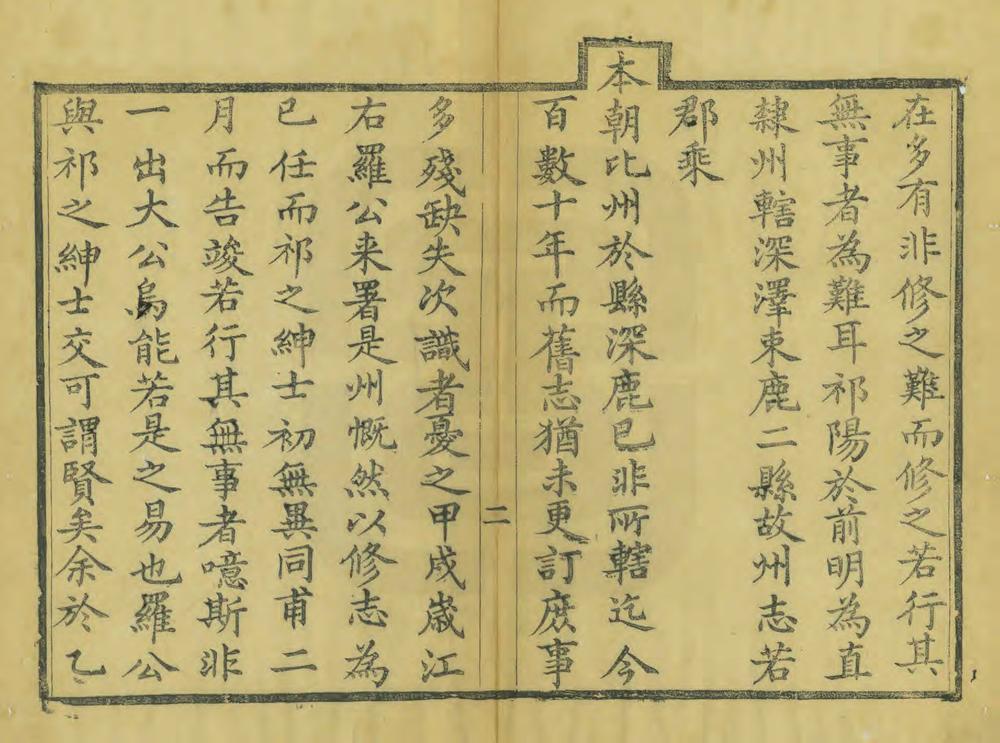 在多有非修之難而修之若行其
無事者為難耳祁陽於前明為直
隸州轄深澤束鹿二縣故州志若
郡乘
本朝比州於縣深鹿已非所轄迄今
百數十年而舊志猶未更訂庶事
二
多殘缺失次識者憂之甲戌歲江
右羅公来署是州慨然以修志為
己任而祁之紳士初無異同甫二
月而告竣若行其無事者噫斯非
一出大公烏能若是之易也羅公
與祁之紳士交可謂賢矣余於乙